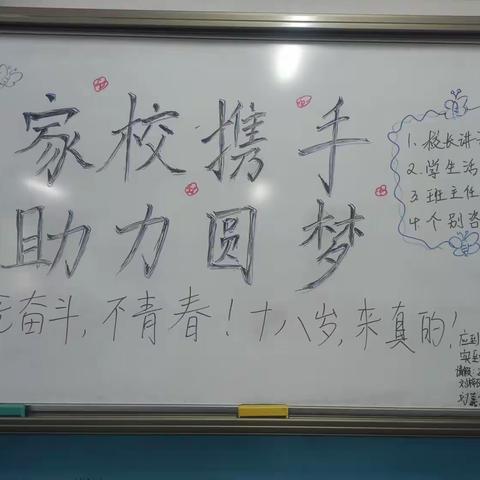 家校携手
助力圆梦
无奋斗,不青春!十八岁,来真的!
1.校长讲
2.学生活
3.班主任
4.个别咨
应到
实到
请假: